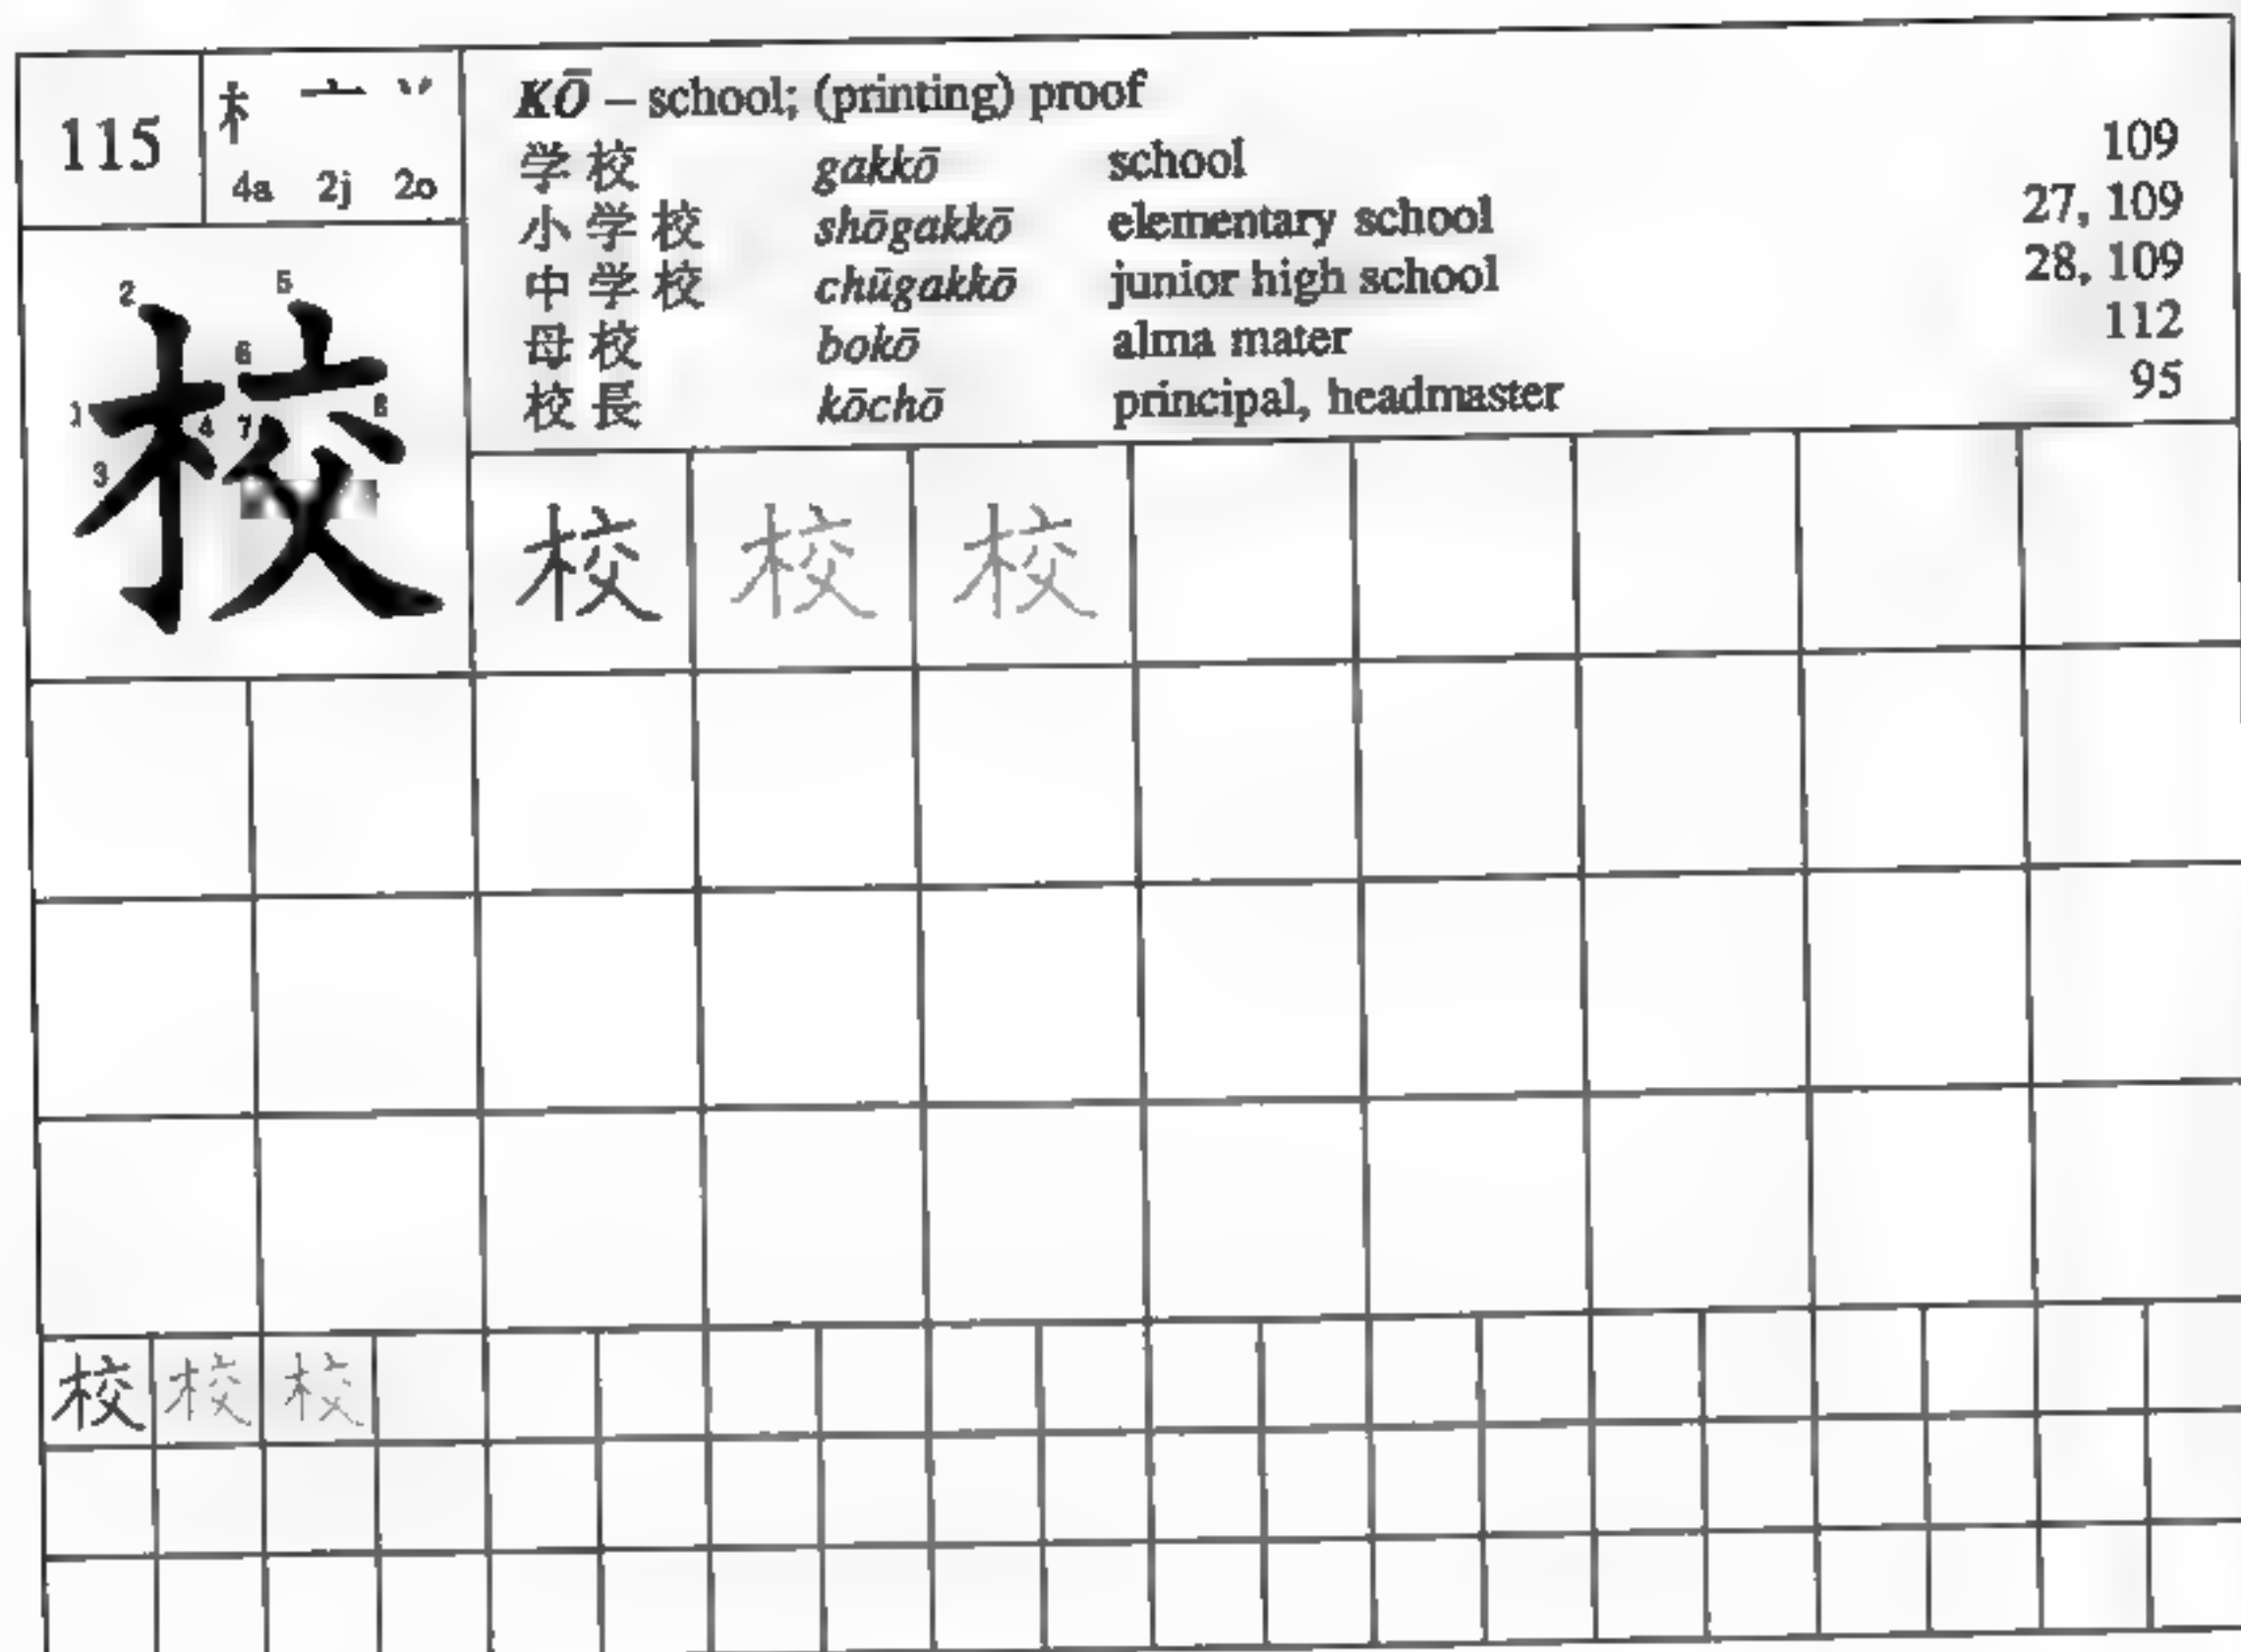 115
木 亠 丷
4a 2j 2o
KŌ – school; (printing) proof
学校 gakkō school 109
小学校 shōgakkō elementary school 27, 109
中学校 chūgakkō junior high school 28, 109
母校 bokō alma mater 112
校長 kōchō principal, headmaster 95
2 5
6
1 8
4 7
3
校
校 校 校
校 校 校